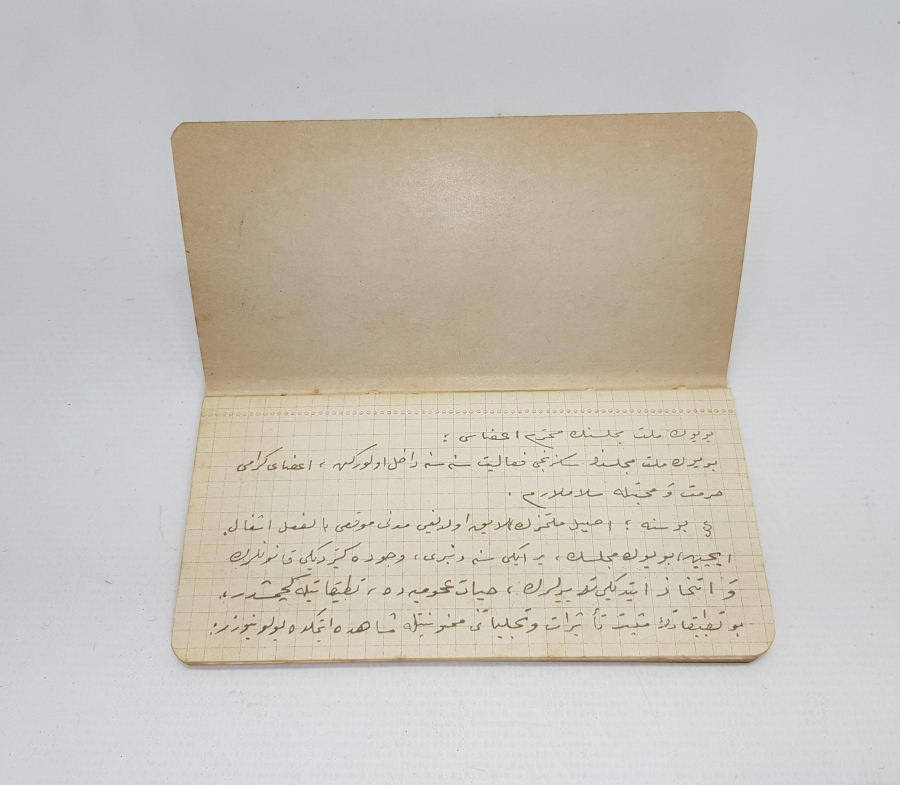 بويوك ملت مجلسنك محترم اعضاسى :
بويوك ملت مجلسنك سكزنجى فعاليت سنه سنه داخل اولوركن ، اعضاى كرامى
حرمت و محبتله سلاملارم .
بر سنه ؛ اصيل ملتمزك لايق اولديغى مدنى موقعى بالفعل اشغال
ايچين، بويوك مجلسك، بر ايكى سنه دنبرى، وجوده كتيرديكى قانونلرك
و اتخاذ ايتديكى تدبيرلرك ، حيات عموميه ده ، تطبيقاتيله كچمشدر .
بو تطبيقاتك مثبت تأثيرات و تجلياتنى ممنونيتله مشاهده ايتمكده بولونيورز .